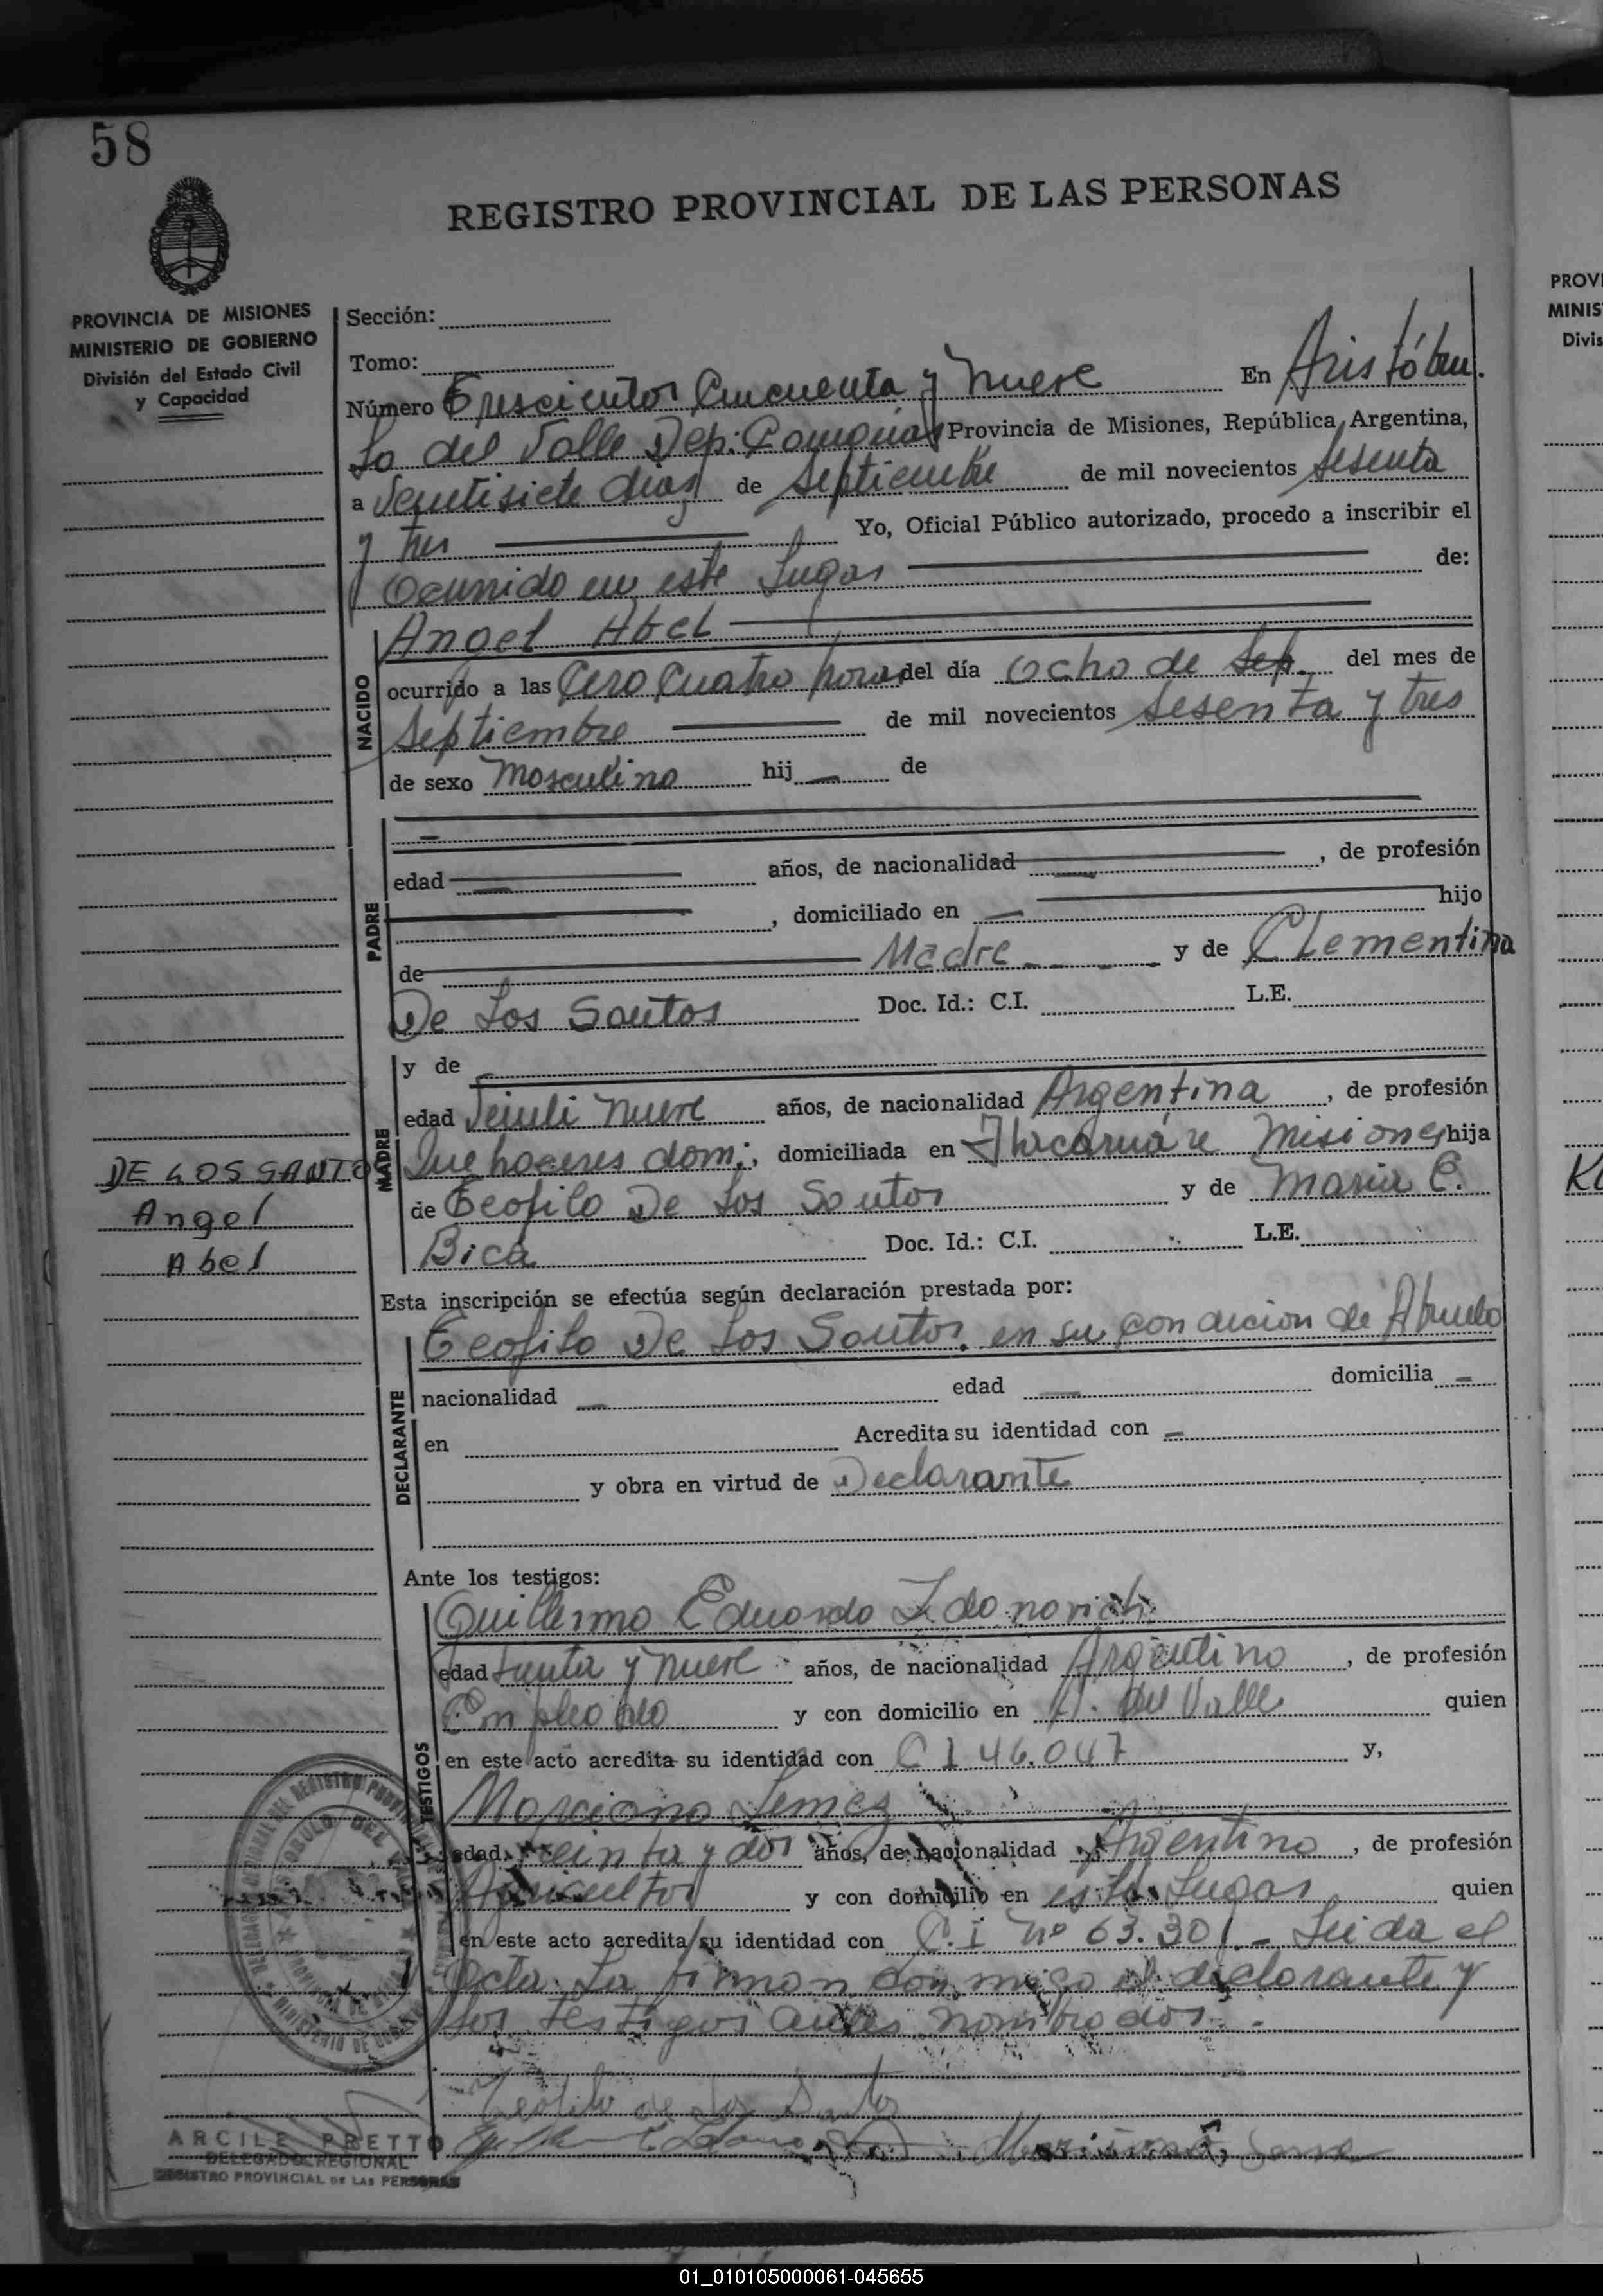 58
REGISTRO PROVINCIAL DE LAS PERSONAS
PROVINCIA DE MISIONES
MINISTERIO DE GOBIERNO
División del Estado Civil
y Capacidad
Sección:
Tomo:
Número Trescientos Cincuenta y Nueve En Aristóbu
lo del Valle Dep: Cainguás Provincia de Misiones, República Argentina,
a Veintisiete dias de Septiembre de mil novecientos sesenta
y tres Yo, Oficial Público autorizado, procedo a inscribir el
Ocurrido en este Lugar de:
NACIDO
Angel Abel
ocurrido a las Cero Cuatro horas del día ocho de Sep. del mes de
Septiembre de mil novecientos sesenta y tres
de sexo Masculino hij de
PADRE
edad años, de nacionalidad , de profesión
, domiciliado en hijo
de Madre y de Clementina
De Los Santos Doc. Id.: C.I. L.E.
MADRE
y de
edad Veinti nueve años, de nacionalidad Argentina , de profesión
Quehaceres dom.; domiciliada en Misiones hija
de Teofilo De Los Santos y de Maria C.
Bica Doc. Id.: C.I. L.E.
DE LOS SANTO
Angel
Abel
Esta inscripción se efectúa según declaración prestada por:
DECLARANTE
Teofilo De Los Santos. en su condicion de Abuelo
nacionalidad edad domicilia
en Acredita su identidad con
y obra en virtud de Declarante
Ante los testigos:
TESTIGOS
Guillermo Eduardo
edad treinta y nueve años, de nacionalidad Argentino , de profesión
Empleado y con domicilio en A. del Valle quien
en este acto acredita su identidad con C I 46.047 y,
Marciano Lemes
edad treinta y dos años, de nacionalidad Argentino , de profesión
Agricultor y con domicilio en este Lugar quien
en este acto acredita su identidad con C.I Nº 63.301.- Leida el
Acta. La firman conmigo el declarante y
los testigos antes nombrados.-
Teófilo de los Santos
ARCILE PRETTO
DELEGADO REGIONAL
REGISTRO PROVINCIAL DE LAS PERSONAS
PROVI
MINIS
Divis
01_010105000061-045655